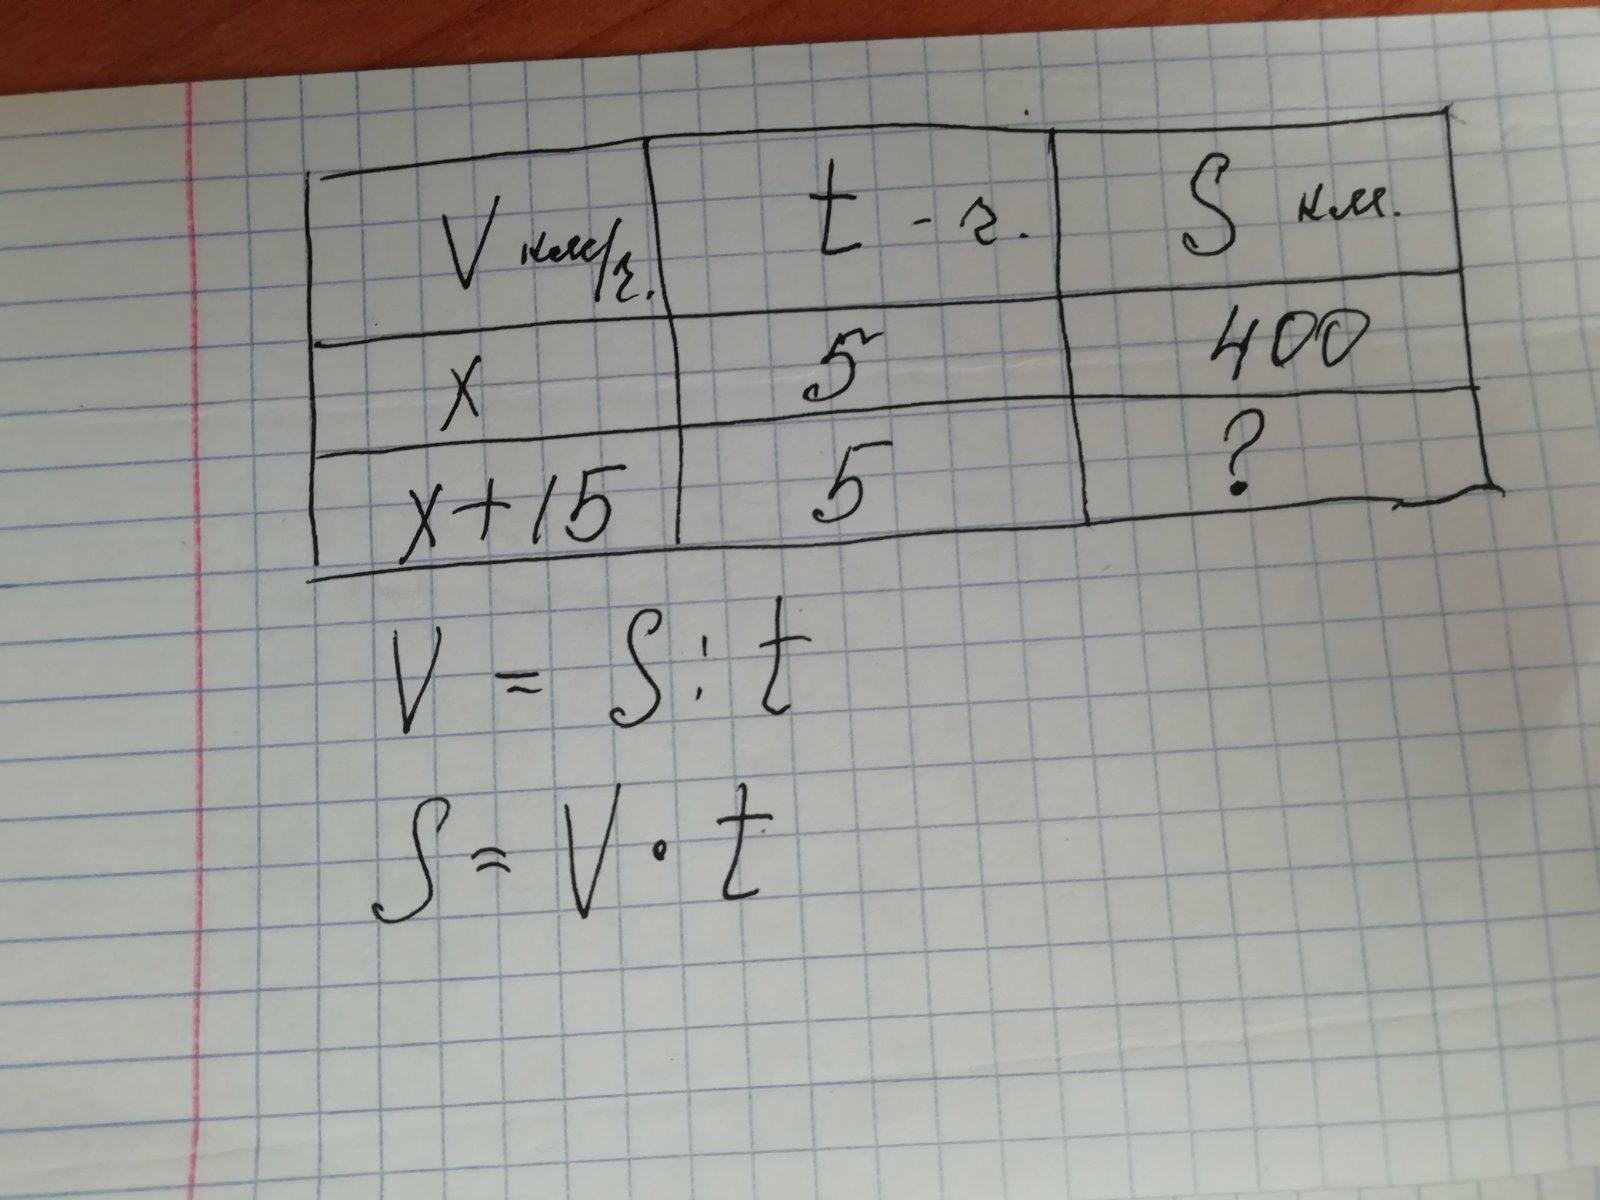 V км/ч. t - ч. S км.
x 5 400
x+15 5 ?
V = S : t
S = V · t